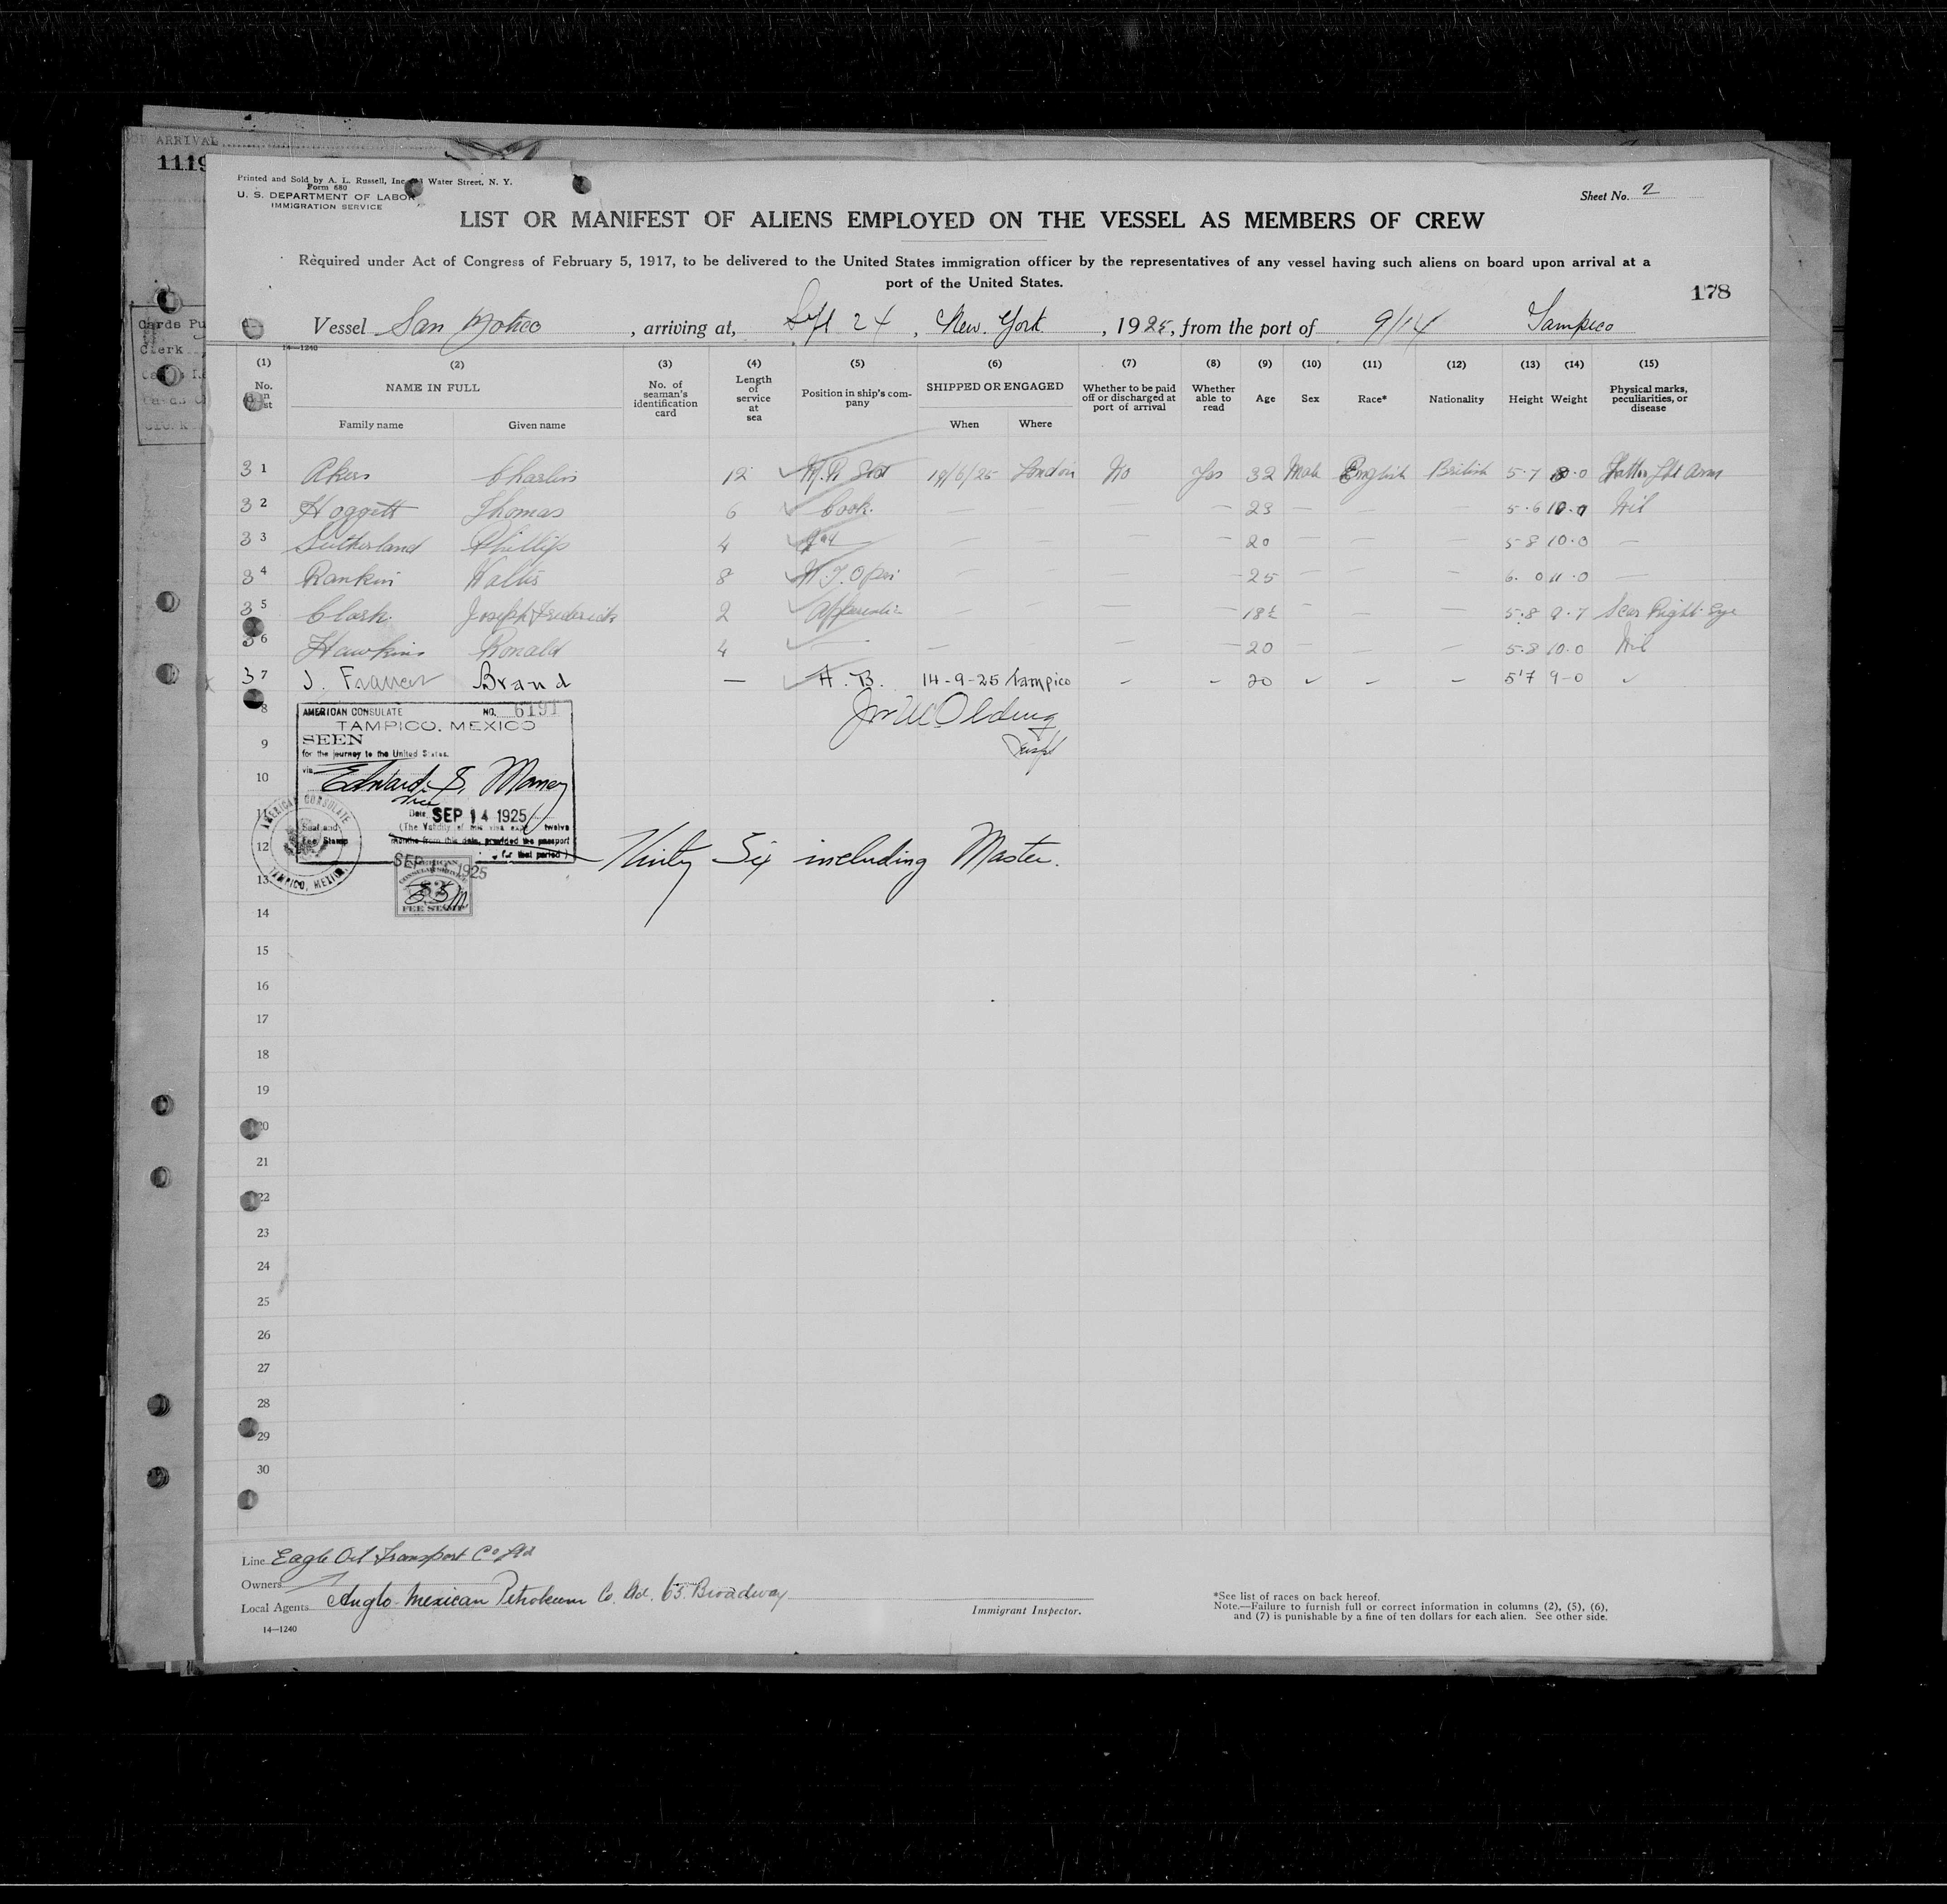 OF ARRIVAL
1119
Printed and Sold by A. L. Russell, Inc. Water Street, N. Y.
Form 680
U. S. DEPARTMENT OF LABOR
IMMIGRATION SERVICE
Sheet No. 2
LIST OR MANIFEST OF ALIENS EMPLOYED ON THE VESSEL AS MEMBERS OF CREW
Required under Act of Congress of February 5, 1917, to be delivered to the United States immigration officer by the representatives of any vessel having such aliens on board upon arrival at a
port of the United States.
178
Vessel San , arriving at, Sept 24, New York, 1925, from the port of 9/14 Tampico
14—1240
(1) (2) (3) (4) (5) (6) (7) (8) (9) (10) (11) (12) (13) (14) (15)
No. on list NAME IN FULL Family name Given name No. of seaman's identification card Length of service at sea Position in ship's company SHIPPED OR ENGAGED When Where Whether to be paid off or discharged at port of arrival Whether able to read Age Sex Race* Nationality Height Weight Physical marks, peculiarities, or disease
31 Akers Charles 12 19/6/25 London No Yes 32 Male English British 5-7 Arm
32 Hoggett Thomas 6 Cook — — — — 23 — — — 5-6 10.0 Nil
33 Sutherland Phillip 4 — — — — 20 — — — 5-8 10.0 —
34 Rankin Walter 8 W.T. Oper — — — — 25 — — — 6.0 11.0 —
35 Clark Joseph Frederick 2 Apprentice — — — — 18½ — — — 5.8 9.7 Scar Right Eye
36 Hawkins Ronald 4 — — — — — 20 — — — 5.8 10.0 Nil
37 J. Brand — A. B. 14-9-25 Tampico - - 20 - - 5'7 9-0
8
AMERICAN CONSULATE NO. 6191
TAMPICO, MEXICO
SEEN
for the journey to the United States.
via
9
10
Edward S.
Vice
Date SEP 14 1925
(The Validity of this visa expires twelve
months from this date, provided the passport
for that period)
Seal and
Fee Stamp
AMERICAN CONSULATE
TAMPICO, MEXICO
11
12 Thirty Six including Master.
SEP 1925
AMERICAN
FEE STAMP
13
14
15
16
17
18
19
20
21
22
23
24
25
26
27
28
29
30
Line Eagle Oil Transport Co Ltd
Owners
Local Agents Anglo-Mexican Petroleum Co. Ltd. 63 Broadway
Immigrant Inspector.
*See list of races on back hereof.
Note.—Failure to furnish full or correct information in columns (2), (5), (6),
and (7) is punishable by a fine of ten dollars for each alien. See other side.
14—1240